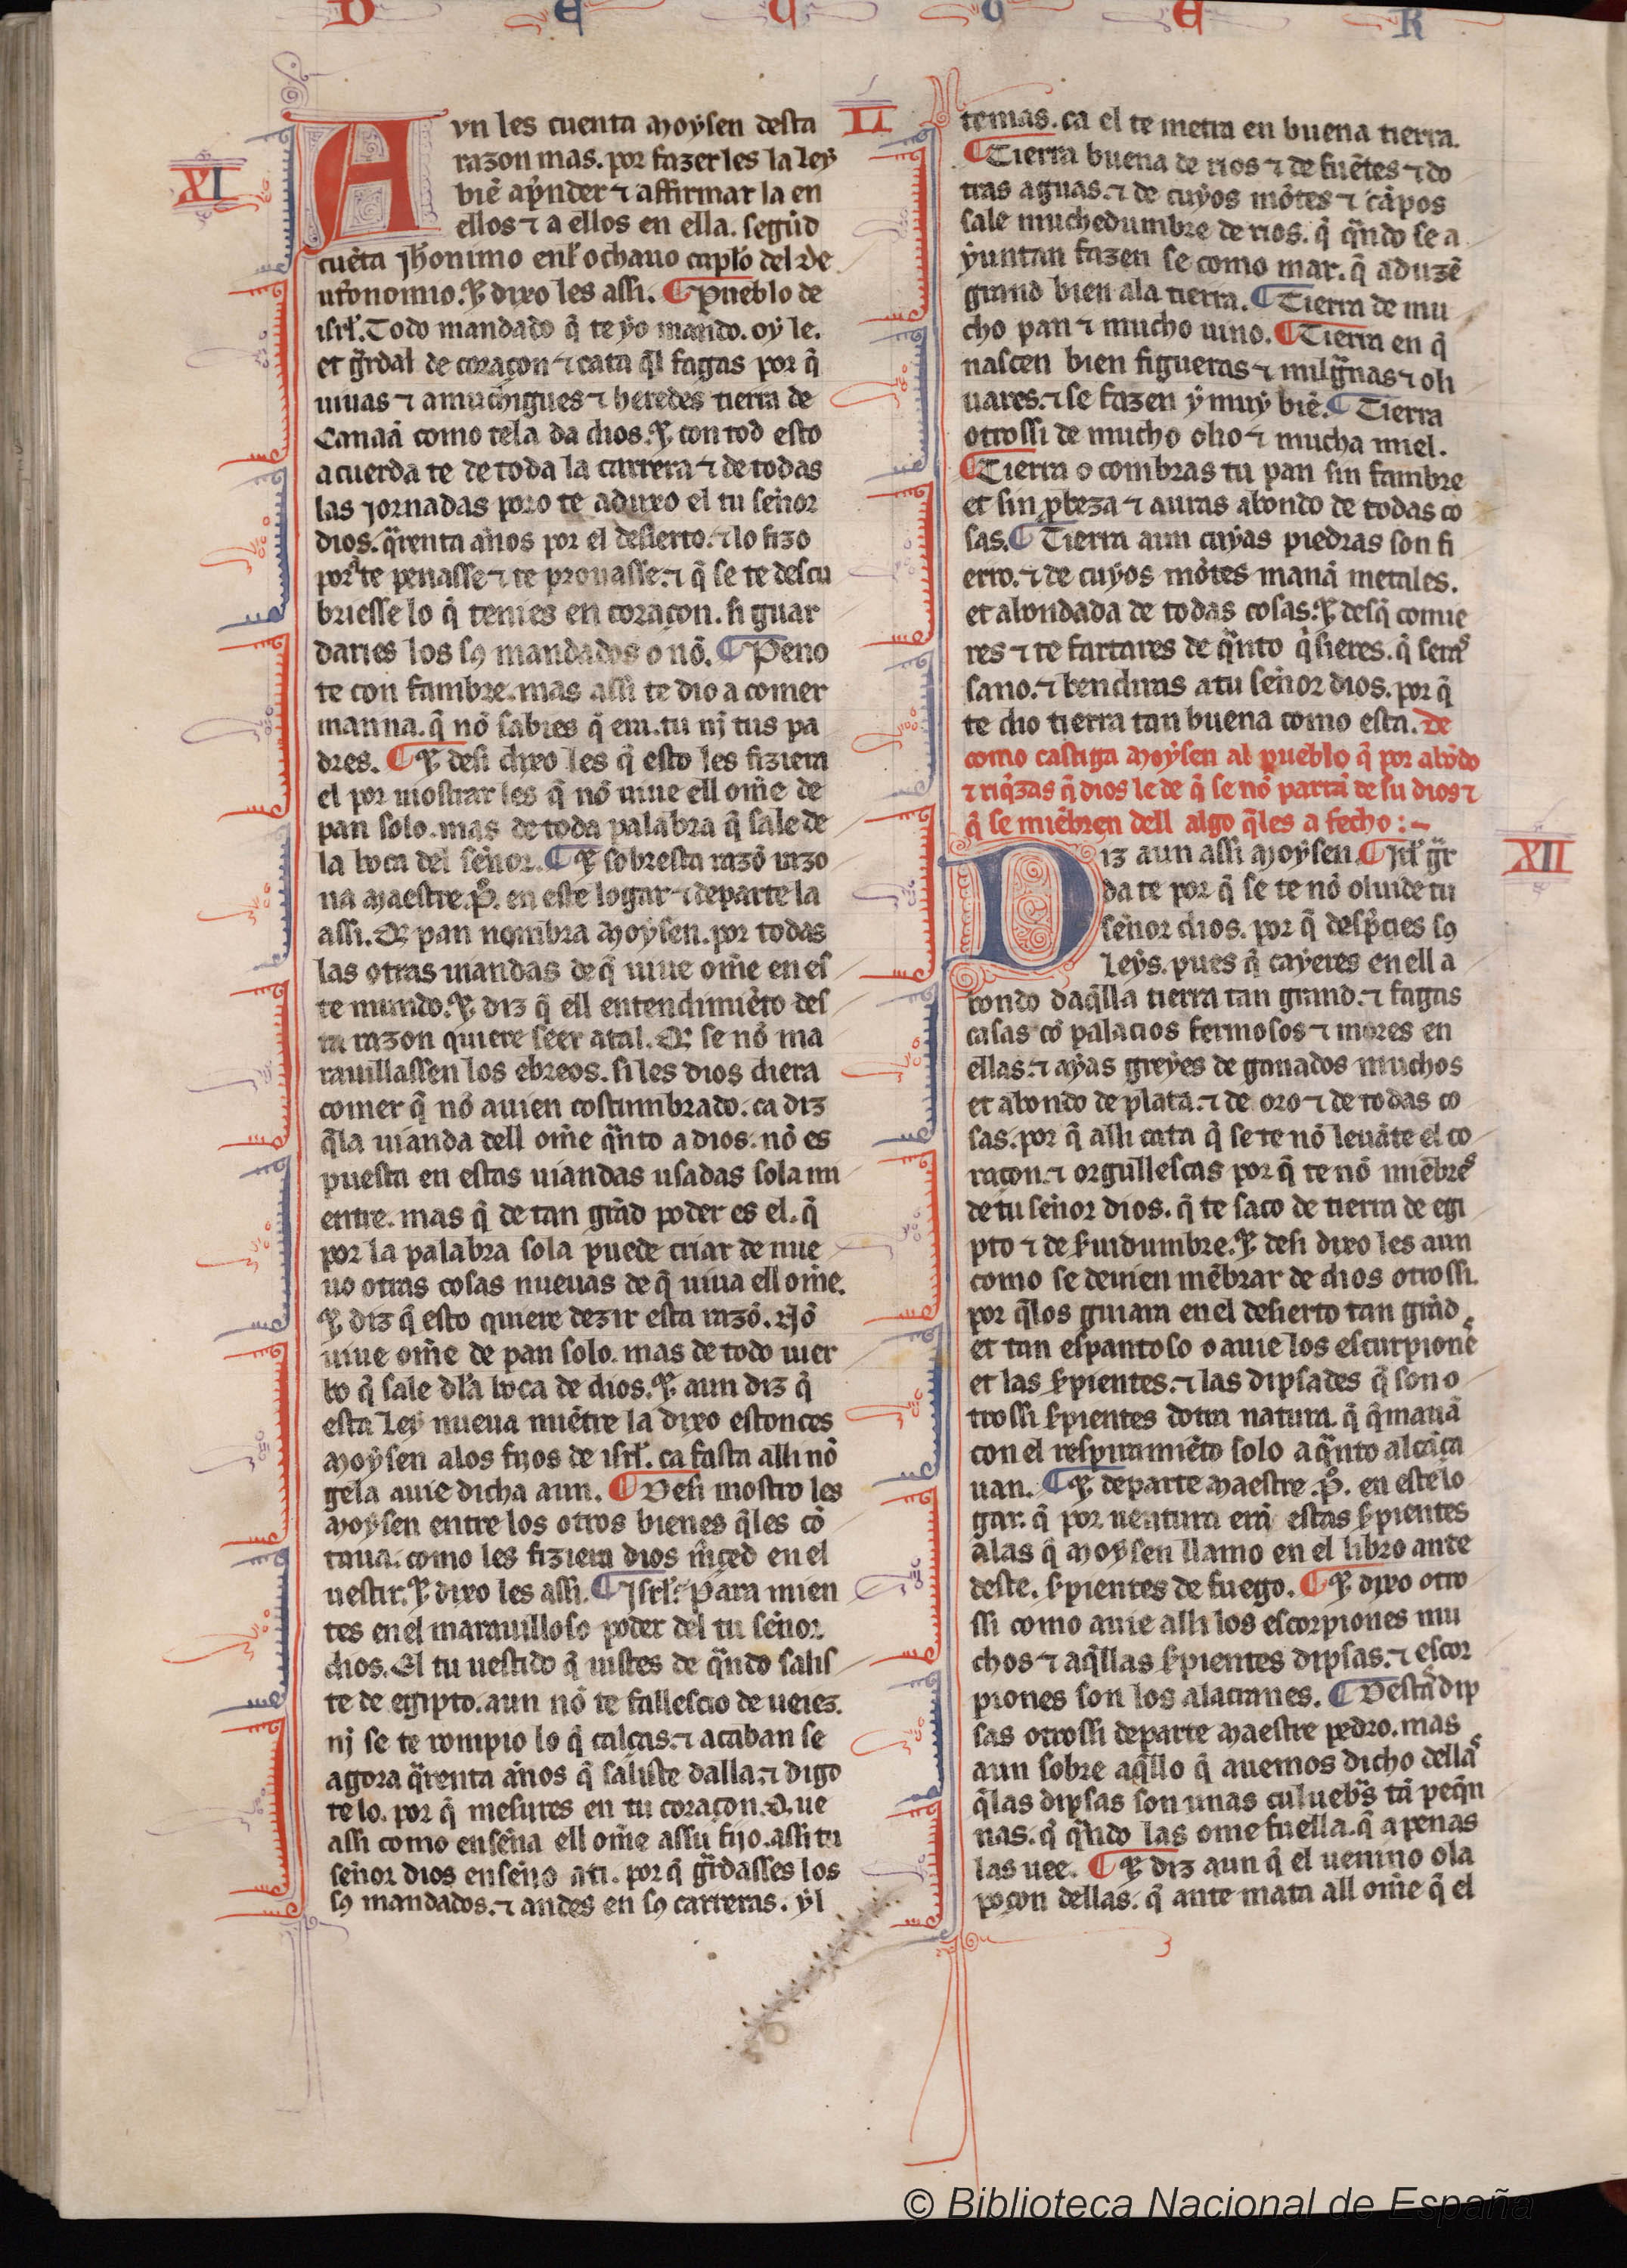 D E U T E R
XI
Avn les cuenta moysen desta
razon mas. por fazer les la ley
biẽ apͥnder ⁊ affirmar la en
ellos ⁊ a ellos en ella. segũd
cuẽta jh̃onimo enl̃ ochauo capl̃o del de
ut̃onomio. ⁊ dixo les assi. ¶ Pueblo de
isrl̃. Todo mandado q̃ te yo mando. oy le.
et gr̃dal de coraçon ⁊ cata q̃l fagas por q̃
uiuas ⁊ amuchigues ⁊ heredes tierra de
Canaã como tela da dios. ⁊ con tod esto
acuerda te de toda la carrera ⁊ de todas
las jornadas poro te aduxo el tu señor
dios. q̃renta años por el desierto. ⁊ lo fizo
porq̃ te penasse ⁊ te prouasse. ⁊ q̃ se te descu
briesse lo q̃ tenies en coraçon. si guar
daries los sꝯ mandados o nõ. ¶ Peno
te con fambre. mas assi te dio a comer
manna. q̃ nõ sabies q̃ era. tu nj tus pa
dres. ¶ ⁊ desi dixo les q̃ esto les fiziera
el por mostrar les q̃ nõ uiue ell om̃e de
pan solo. mas de toda palabra q̃ sale de
la boca del señor. ¶ ⁊ sobresta razõ razo
na maestre .P̃. en este logar ⁊ departe la
assi. Q̃ pan nombra moysen. por todas
las otras uiandas de q̃ uiue om̃e en es
te mundo. ⁊ diz q̃ ell entendimiẽto des
ta razon quiere seer atal. Q̃ se nõ ma
rauillassen los ebreos. si les dios diera
comer q̃ nõ auien costumbrado. ca diz
q̃la uianda dell om̃e q̃nto a dios. nõ es
puesta en estas uiandas usadas sola mi
entre. mas q̃ de tan grãd poder es el. q̃
por la palabra sola puede criar de nue
uo otras cosas nueuas de q̃ uiua ell om̃e.
⁊ diz q̃ esto quiere dezir esta razõ. Nõ
uiue om̃e de pan solo. mas de todo uier
bo q̃ sale dl̃a boca de dios. ⁊ aun diz q̃
esta ley nueua miẽtre la dixo estonces
moysen alos fijos de isrl̃. ca fasta alli nõ
gela auie dicha aun. ¶ Desi mostro les
moysen entre los otros bienes q̃les cõ
taua. como les fiziera dios m̃ced en el
uestir. ⁊ dixo les assi. ¶ Jsrl̃. Para mien
tes en el marauilloso poder del tu señor
dios. El tu uestido q̃ uistes de q̃ndo salis
te de egipto. aun nõ te fallescio de ueiez.
nj se te rompio lo q̃ calças. ⁊ acaban se
agora q̃renta años q̃ saliste dalla. ⁊ digo
te lo. por q̃ mesures en tu coraçon. Que
assi como enseña ell om̃e assu fijo. assi tu
señor dios enseño ati. por q̃ gr̃dasses los
sꝯ mandados. ⁊ andes en sꝯ carreras. ⁊ yl
II
temas. ca el te metra en buena tierra.
¶ Tierra buena de rios ⁊ de fuẽtes ⁊ do
tras aguas. ⁊ de cuyos mõtes ⁊ cãpos
sale muchedumbre de rios. q̃ q̃ndo se a
yuntan fazen se como mar. q̃ aduzẽ
grand bien ala tierra. ¶ Tierra de mu
cho pan ⁊ mucho uino. ¶ Tierra en q̃
nascen bien figueras ⁊ milgr̃nas ⁊ oli
uares. ⁊ se fazen y muy biẽ. ¶ Tierra
otrossi de mucho olio ⁊ mucha miel.
¶ Tierra o combras tu pan sin fambre
et sin pobreza ⁊ auras abondo de todas co
sas. ¶ Tierra aun cuyas piedras son fi
erro. ⁊ de cuyos mõtes manã metales.
et abondada de todas cosas. ⁊ desq̃ comie
res ⁊ te fartares de q̃nto q̃sieres. q̃ seras
sano. ⁊ bendiras atu señor dios. por q̃
te dio tierra tan buena como esta. De
como castiga moysen al pueblo q̃ por abõdo
⁊ riq̃zas q̃ dios le de q̃ se nõ partã de su dios ⁊
q̃ se miẽbren dell algo q̃les a fecho :~
XII
Diz aun assi moysen. ¶ Jsrl̃ gr̃
da te por q̃ se te nõ oluide tu
señor dios. por q̃ desp̃cies sꝯ
leys. pues q̃ cayeres en ell a
bondo daq̃lla tierra tan grand. ⁊ fagas
casas cõ palacios fermosos ⁊ mores en
ellas. ⁊ ayas greyes de ganados muchos
et abondo de plata. ⁊ de oro ⁊ de todas co
sas. por q̃ assi cata q̃ se te nõ leuãte el co
raçon. ⁊ orgullescas por q̃ te nõ miẽbres
de tu señor dios. q̃ te saco de tierra de egi
pto ⁊ de s̃uidumbre. ⁊ desi dixo les aun
como se deuien mẽbrar de dios otrossi.
por q̃los guiara en el desierto tan grãd
et tan espantoso o auie los escurpiones
et las s̃pientes. ⁊ las dipsades q̃ son o
trossi s̃pientes dotra natura. q̃ q̃mauã
con el respiramiẽto solo a q̃nto alcãça
uan. ¶ ⁊ departe maestre .P̃. en este lo
gar. q̃ por uentura erã estas s̃pientes
alas q̃ moysen llamo en el libro ante
deste. s̃pientes de fuego. ¶ ⁊ dixo otro
ssi como auie alli los escorpiones mu
chos ⁊ aq̃llas s̃pientes dipsas. ⁊ escor
piones son los alacranes. ¶ Destas dip
sas otrossi departe maestre pedro. mas
aun sobre aq̃llo q̃ auemos dicho dellas
q̃las dipsas son unas culueb̃s tã peq̃n
nas. q̃ q̃ndo las ome fuella. q̃ apenas
las uee. ¶ ⁊ diz aun q̃ el uenino o la
poçon dellas. q̃ ante mata all om̃e q̃ el
© Biblioteca Nacional de España